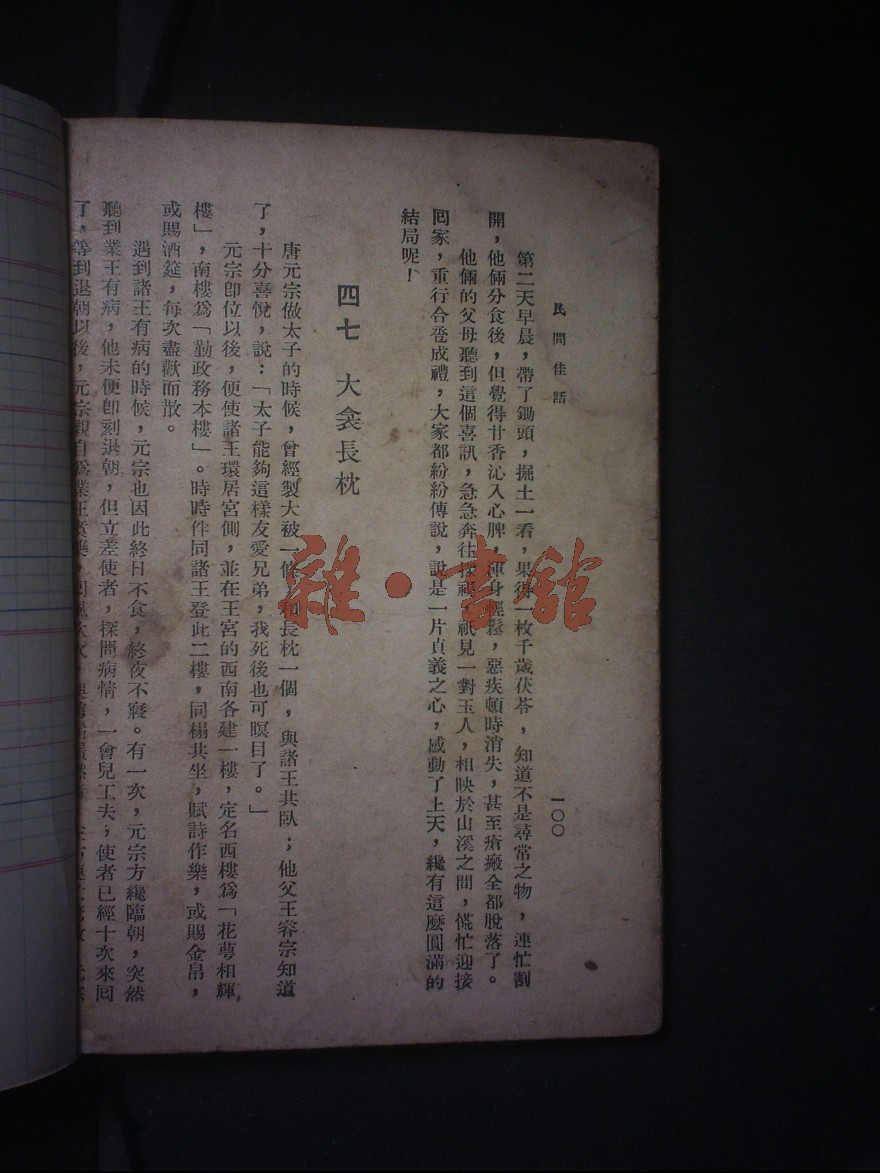 民間佳話
一〇〇
第二天早晨，帶了鋤頭，掘土一看，果得一枚千歲茯苓，知道不是尋常之物，連忙割
開，他倆分食後，但覺得甘香沁入心脾，渾身輕鬆，惡疾頓時消失，甚至瘡瘢全都脫落了。
他倆的父母聽到這個喜訊，急急奔往探視，祇見一對玉人，相映於山溪之間，慌忙迎接
回家，重行合卺成禮，大家都紛紛傳說，說是一片貞義之心，感動了上天，纔有這麼圓滿的
結局呢！
四七 大衾長枕
唐元宗做太子的時候，曾經製大被一條，和長枕一個，與諸王共臥；他父王睿宗知道
了，十分喜悅，說：「太子能夠這樣友愛兄弟，我死後也可瞑目了。」
元宗卽位以後，便使諸王環居宮側，並在王宮的西南各建一樓，定名西樓爲「花萼相輝
樓」，南樓爲「勤政務本樓」。時時伴同諸王登此二樓，同榻共坐，賦詩作樂，或賜金帛，
或賜酒筵，每次盡歡而散。
遇到諸王有病的時候，元宗也因此終日不食，終夜不寢。有一次，元宗方纔臨朝，突然
聽到業王有病，他未便卽刻退朝，但立差使者，探問病情，一會兒工夫；使者已經十次來回
了，等到退朝以後，元宗親自爲業王煑藥，
雜·書館